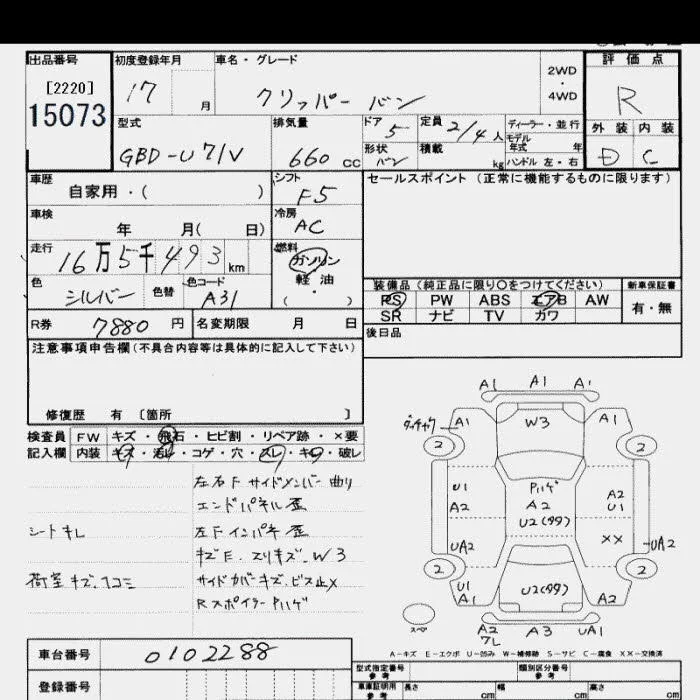 出品番号 初度登録年月 車名・グレード 評価点
[2220]
15073
17 月 クリッパー バン 2WD ・ 4WD R
型式 排気量 ドア 定員 ディーラー・並行 外装 内装
GBD-U71V 660 cc 5 2/4 人 モデル年式 年 D C
形状 バン 積載 kg ハンドル 左・右
車歴 シフト セールスポイント(正常に機能するものに限ります)
自家用・( ) F5
車検 冷房
年 月( 日) AC
走行 燃料
16万5千493km ガソリン
軽油
( )
色 色替 色コード
シルバー A31
装備品(純正品に限り○をつけてください) 新車保証書
PS PW ABS エアB AW 有・無
SR ナビ TV カワ
R券 7880 円 名変期限 月 日 後日品
注意事項申告欄(不具合内容等は具体的に記入して下さい)
修復歴 有 〔箇所 〕
検査員 FW キズ・飛石・ヒビ割・リペア跡・×要
記入欄 内装 キズ・汚レ・コゲ・穴・スレ・キレ・破レ
左右F サイドメンバー 曲り
エンドパネル 歪
シートキレ 左Fインパネ 歪
キズE、スリキズ、W3
荷室キズ、ヘコミ サイドカバーキズ、ビス止×
Rスポイラー Pハゲ
A1 A1 A1
A1 W3 A1
2 2
U1 Pハゲ A2
A2 A2 U1
U2(99)
UA2 ×× UA2
2 2
U1 U2(99)
A1 A2
スペ A2 A3 UA1
ワレ
A-キズ E-エクボ U-凹み W-補修跡 S-サビ C-腐食 ××-交換済
車台番号 0102288
登録番号
型式指定番号 参考 類別区分番号 参考
車庫証明用 参考 長さ cm 幅 cm 高さ cm